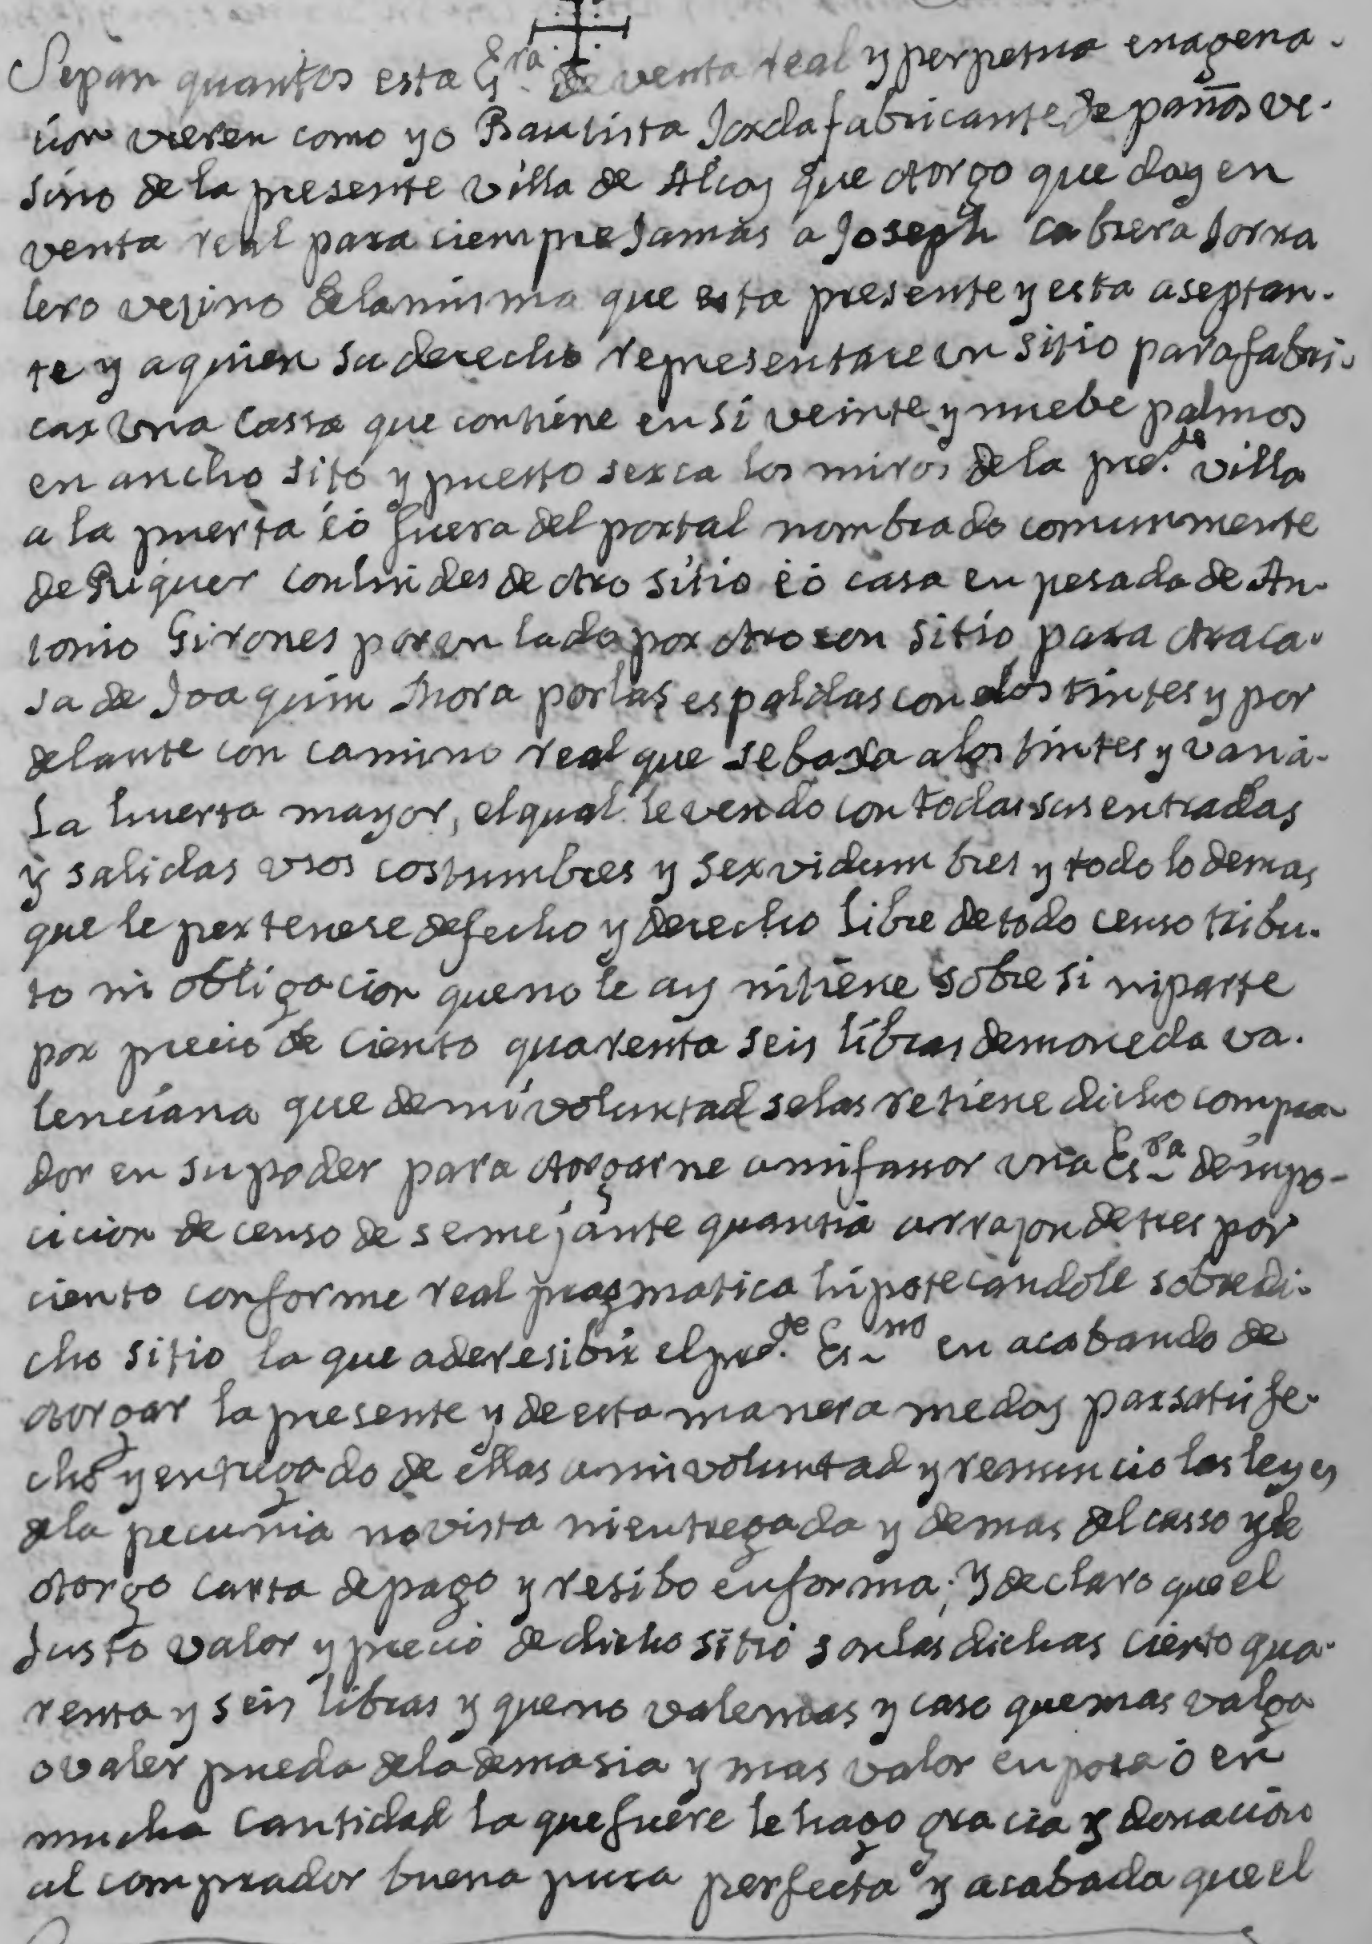 Sepan quantos esta Esra de venta real y perpetua enagena-
cion vieren como yo Bautista Jorda fabricante de paños ve-
sino de la presente villa de Alcoy que otorgo que doy en
venta real para ciempre Jamas a Joseph Cabrera Jorna
lero vezino de la misma que esta presente y esta aseptan-
te y a quien su derecho representare un sitio para fabri-
car una Cassa que contiene en si veinte y nuebe palmos
en ancho sito y puesto serca los muros de la pre.te villa
a la puerta éo fuera del portal nombrado comunmente
de Riquer con lindes de otro sitio éo casa enpesada de An-
tonio Girones por un lado por otro con sitio para otra ca-
sa de Joaquin Mora por las espaldas con dos tintes y por
delante con camino real que se baxa a los tintes y van a
la huerta mayor, el qual le vendo con todas sus entradas
y salidas usos costumbres y servidumbres y todo lo demas
que le pertenese de fecho y derecho libre de todo censo tribu-
to ni obligacion que no le ay ni tiene sobre si ni parte
por precio de ciento quarenta seis libras de moneda va-
lenciana que de mi voluntad se las retiene dicho compra
dor en su poder para otorgarne a mi favor una Esra de inpo-
cicion de censo de semejante quantia a rrazon de tres por
ciento conforme real pragmatica hipotecandole sobre di-
cho sitio la que a de resibir el pre.te Esno en acabando de
otorgar la presente y de esta manera me doy par satisfe-
cho y entregado de ellas a mi voluntad y renuncio las leyes
de la pecunia no vista ni entregada y demas del casso y le
otorgo carta de pago y resibo en forma; Y declaro que el
Justo valor y precio de dicho sitio son las dichas ciento qua-
renta y seis libras y que no vale mas y caso que mas valga
o valer pueda de la demasia y mas valor en poca ó en
mucha cantidad la que fuere le hago gracia y donacion
al comprador buena pura perfecta y acabada que el